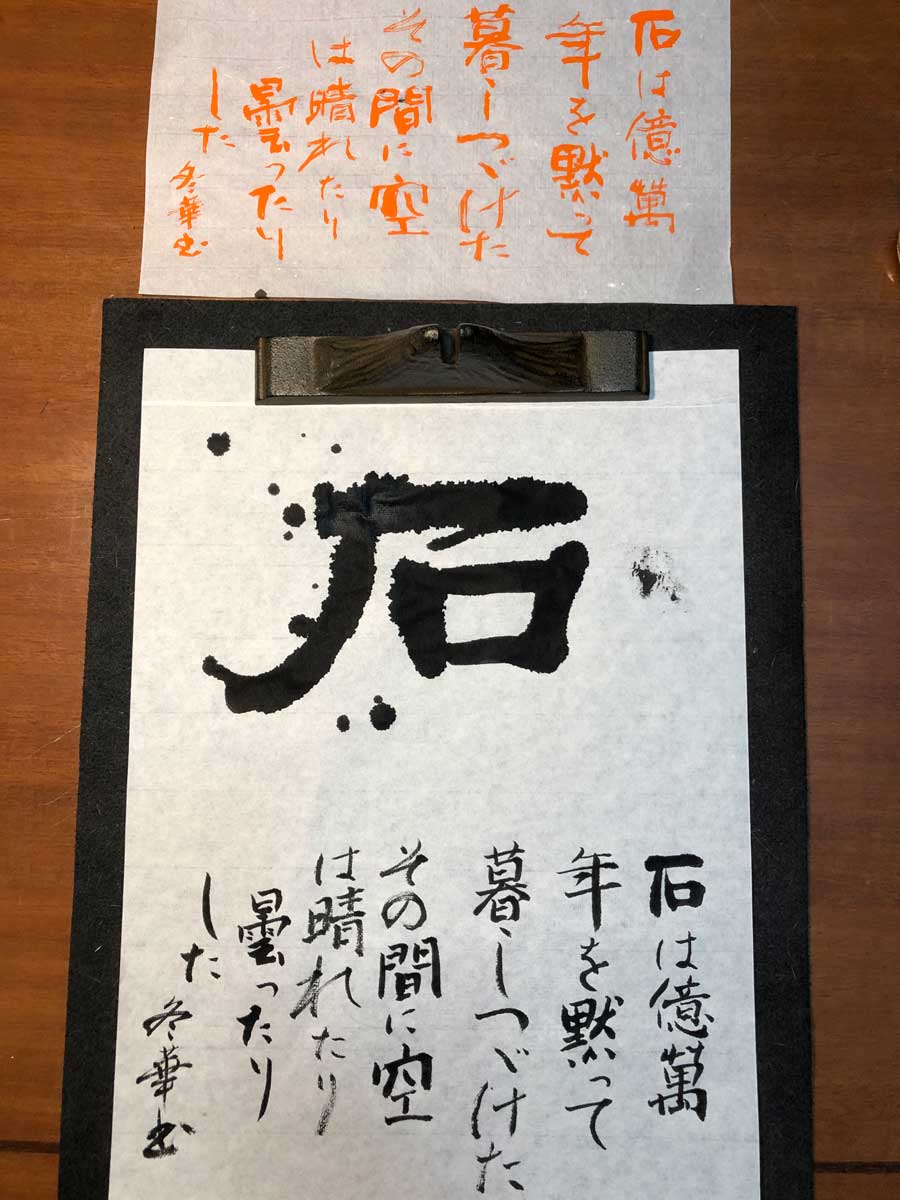 石は億萬
年を黙って
暮しつゞけた
その間に空
は晴れたり
曇ったり
した
冬華書
石
石は億萬
年を黙って
暮しつゞけた
その間に空
は晴れたり
曇ったり
した
冬華書